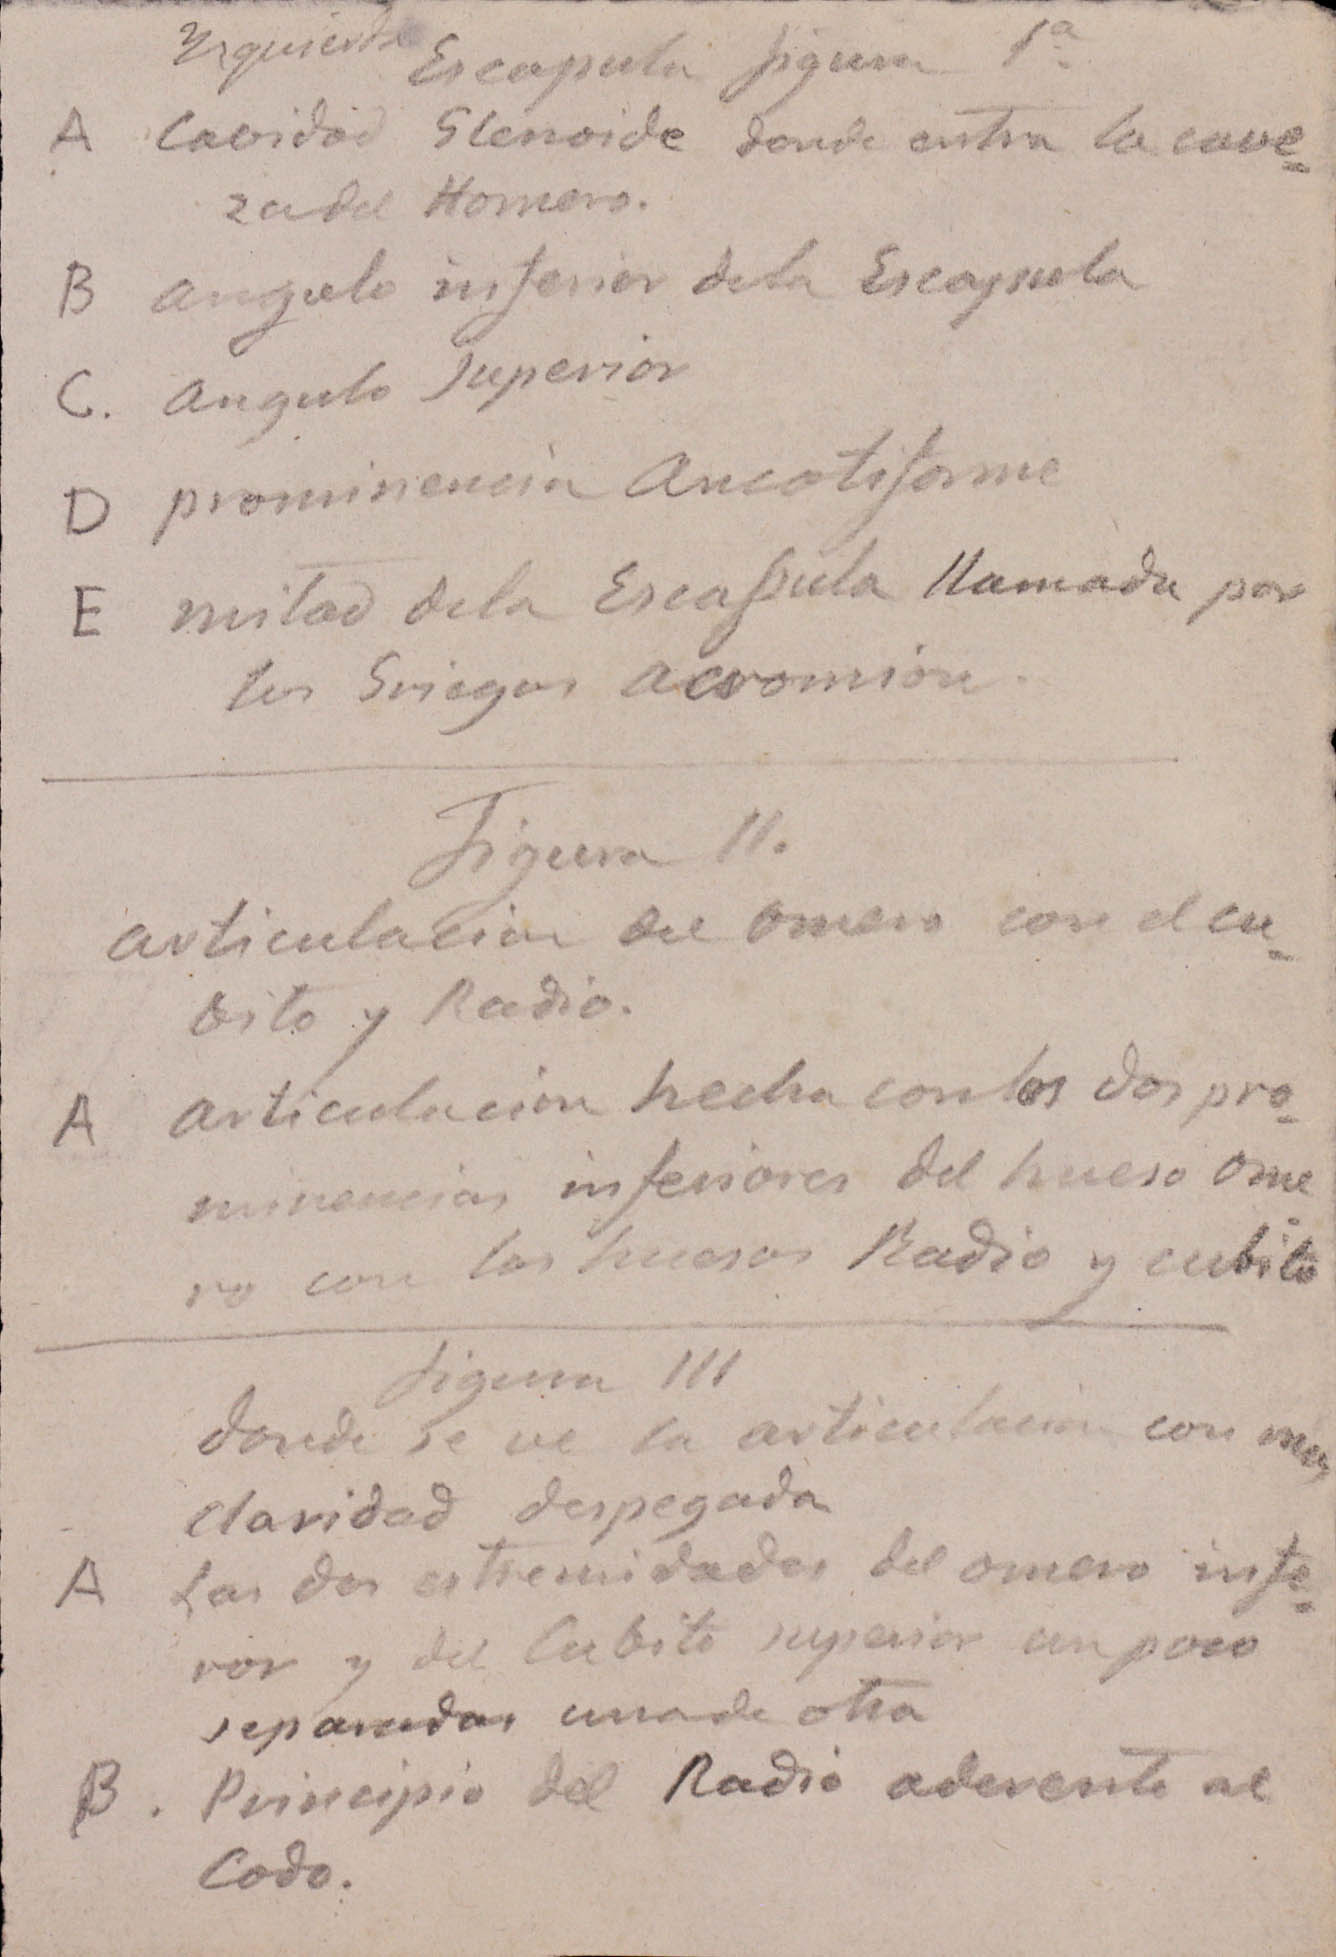 Yzquierda Escapula figura 1ª
A Cavidad Glenoide donde entra la cave-
za del Homero.
B angulo inferior dela Escapula
C. angulo Superior
D prominencia Ancotiforme
E mitad dela Escapula llamada por
los Griegos acromion.
Figura II.
articulacion del omero con el cu-
bito y Radio.
A articulacion hecha con las dos pro-
minencias inferiores del hueso ome
ro con los huesos Radio y cubito
figura III
donde se ve la articulacion con mas
claridad despegada
A Las dos estremidades del omero infe-
rior y del Cubito superior un poco
separadas una de otra
B. Principio del Radio aderente al
Codo.